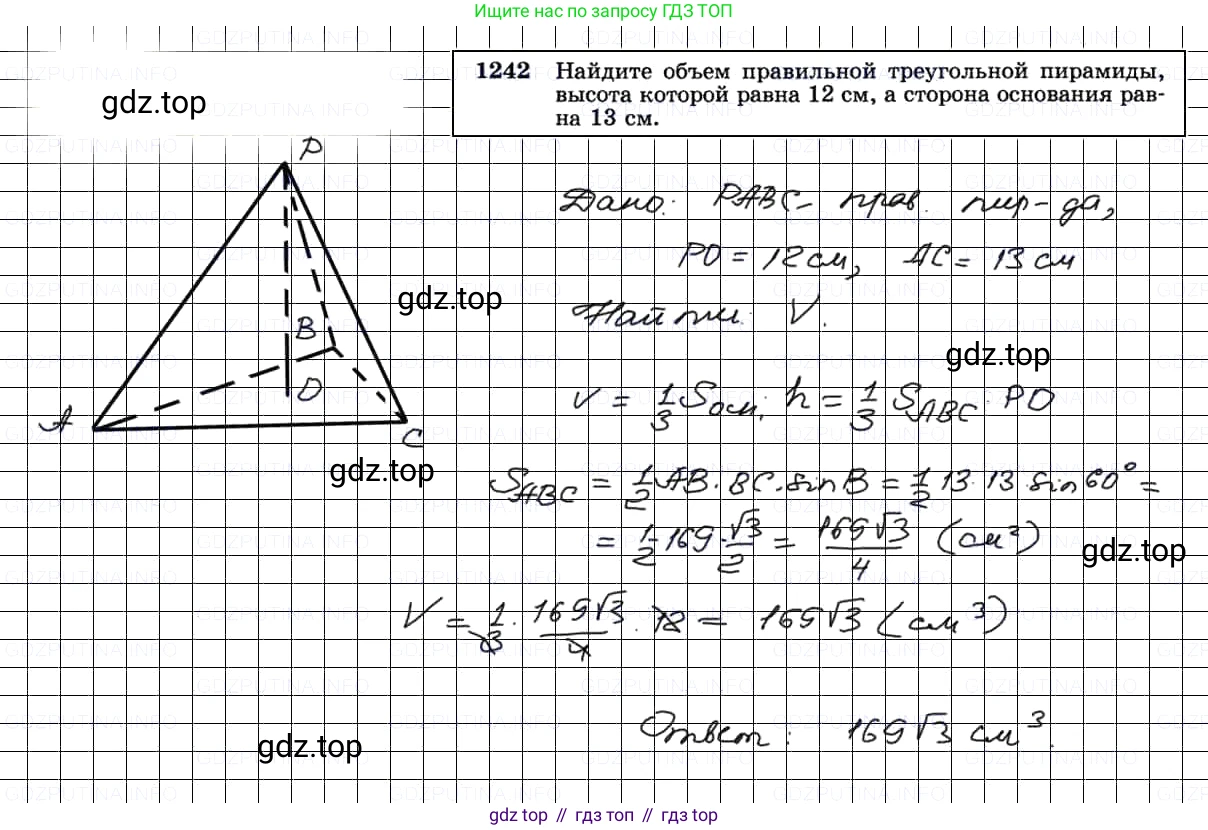 Ищите нас по запросу ГДЗ ТОП
1242 Найдите объем правильной треугольной пирамиды,
высота которой равна 12 см, а сторона основания рав-
на 13 см.
gdz.top
P
Дано: PABC- прав. пир-да,
PO = 12 см, AC = 13 см
gdz.top
Найти: V.
B
gdz.top
O
V = 1/3 Sосн. h = 1/3 S_ABC · PO
A
C
gdz.top
S_ABC = 1/2 AB · BC · sin B = 1/2 13 · 13 · sin 60° =
= 1/2 · 169 · √3/2 = 169√3/4 (см²)
gdz.top
V = 1/3 · 169√3/4 · 12 = 169√3 (см³)
Ответ: 169√3 см³.
gdz.top
gdz top // гдз топ // gdz top
GDZPUTINA.INFO